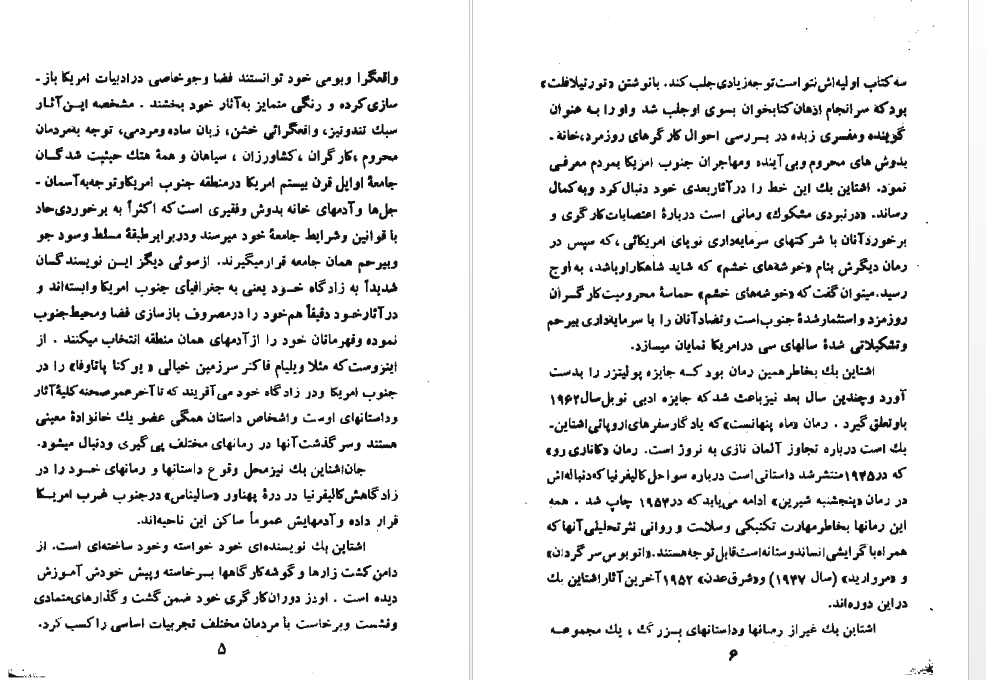 واقعگرا و بومی خود توانستند فضا و جو خاصی در ادبیات امریکا باز ـ
سازی کرده و رنگی متمایز به آثار خود بخشند . مشخصه ایـن آثـار
سبك تند و تیز، واقعگرائی خشن، زبان ساده و مردمی، توجه به مردمان
محروم ،کارگران ،کشاورزان ، سیاهان و همهٔ هتك حیثیت شدگـان
جامعهٔ اوایل قرن بیستم امریکا در منطقه جنوب امریکا و توجه به آسمان ـ
جل‌ها و آدمهای خانه بدوش و فقیری است که اکثراً به برخوردی حاد
با قوانین و شرایط جامعهٔ خود میرسند و در برابر طبقهٔ مسلط و سود جو
و بیرحم همان جامعه قرار میگیرند. از سوئی دیگر ایـن نویسندگـان
شدیداً به زادگاه خـود یعنی به جغرافیای جنوب امریکا وابسته‌اند و
در آثار خـود دقیقاً هم خود را در مصروف بازسازی فضا و محیط جنوب
نموده و قهرمانان خود را از آدمهای همان منطقه انتخاب میکنند . از
اینروست که مثلا ویلیام فاکنر سرزمین خیالی « یوکنا پاتاوفا» را در
جنوب امریکا و در زادگاه خود می‌آفریند که تا آخر عمر صحنه کلیهٔ آثار
و داستانهای اوست و اشخاص داستان همگی عضو یك خانوادهٔ معینی
هستند و سرگذشت آنها در رمانهای مختلف پی‌گیری و دنبال میشود.
جان اشتاین بك نیز محل وقوع داستانها و رمانهای خـود را در
زادگاهش کالیفرنیا در درهٔ پهناور «سالیناس» در جنوب غـرب امریـکا
قرار داده و آدمهایش عموماً ساکن این ناحیه‌اند.
اشتاین بك نویسنده‌ای خود خواسته و خود ساخته‌ای است. از
دامن کشت زارها و گوشه کارگاهها بـرخاسته و پیش خودش آمـوزش
دیده است . او در دوران کارگری خود ضمن گشت و گذارهای متمادی
و نشست و برخاست با مردمان مختلف تجربیات اساسی را کسب کرد.
۵
سه کتاب اولیه‌اش نتواست توجه زیادی جلب کند. با نوشتن «تورتیلافلت»
بود که سرانجام اذهان کتابخوان بسوی او جلب شد و او را بـه عنوان
گوینده و مفسری زبده در بـررسی احوال کارگرهای روزمزد،خانه ـ
بدوش های محروم و بی‌آینده و مهاجران جنوب امریکا بمردم معرفـی
نمود. اشتاین بك این خط را در آثار بعدی خود دنبال کرد و به کمال
رساند. «در نبردی مشکوك» رمانی است دربارهٔ اعتصابات کارگری و
برخورد آنان با شرکتهای سرمایه‌داری نوپای امریکائی ،که سپس در
رمان دیگرش بنام «خوشه‌های خشم» که شاید شاهکار او باشد، به اوج
رسید. میتوان گفت که «خوشه‌های خشم» حماسهٔ محرومیت کارگـران
روزمزد و استثمار شدهٔ جنوب است و تضاد آنان را با سرمایه‌داری بیرحم
و تشکیلاتی شدهٔ سالهای سی در امریکا نمایان میسازد.
اشتاین بك بخاطر همین رمان بود کـه جایزه پولیتزر را بدست
آورد و چندین سال بعد نیز باعث شد که جایزه ادبی نوبل سال ۱۹۶۲
باو تعلق گیرد . رمان «ماه پنهانست» که یادگار سفرهای اروپائی اشتاین ـ
بك است درباره تجاوز آلمان نازی به نروژ است. رمان «کاناری رو»
که در ۱۹۴۵ منتشر شد داستانی است درباره سواحل کالیفرنیا که دنباله‌اش
در رمان «پنجشنبه شیرین» ادامه می‌یابد که در ۱۹۵۴ چاپ شد . همه
این رمانها بخاطر مهارت تکنیکی و سلاست و روانی نثر تحلیلی آنها که
همراه با گرایشی انساندوستانه است قابل توجه هستند. «اتوبوس سرگردان»
و «مروارید» (سال ۱۹۴۷) و «شرق عدن» ۱۹۵۲ آخرین آثار اشتاین بك
در این دوره‌اند.
اشتاین بك غیر از رمانها و داستانهای بـزرگ ، یك مجموعـه
۶